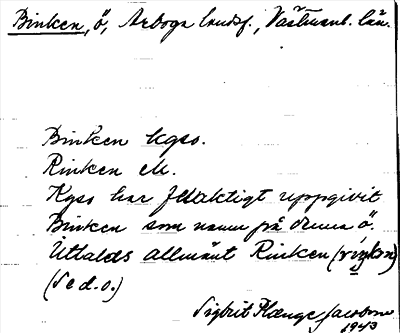 Binken, ö, Arboga landsf., Västmanl. län.
Binken Kgso.
Rinken EM.
Kgso har felaktigt uppgivit
Binken som namn på denna ö.
Uttalas allmänt Rinken
(se d.o.)
Sigbrit Plænge Jacobson
1943